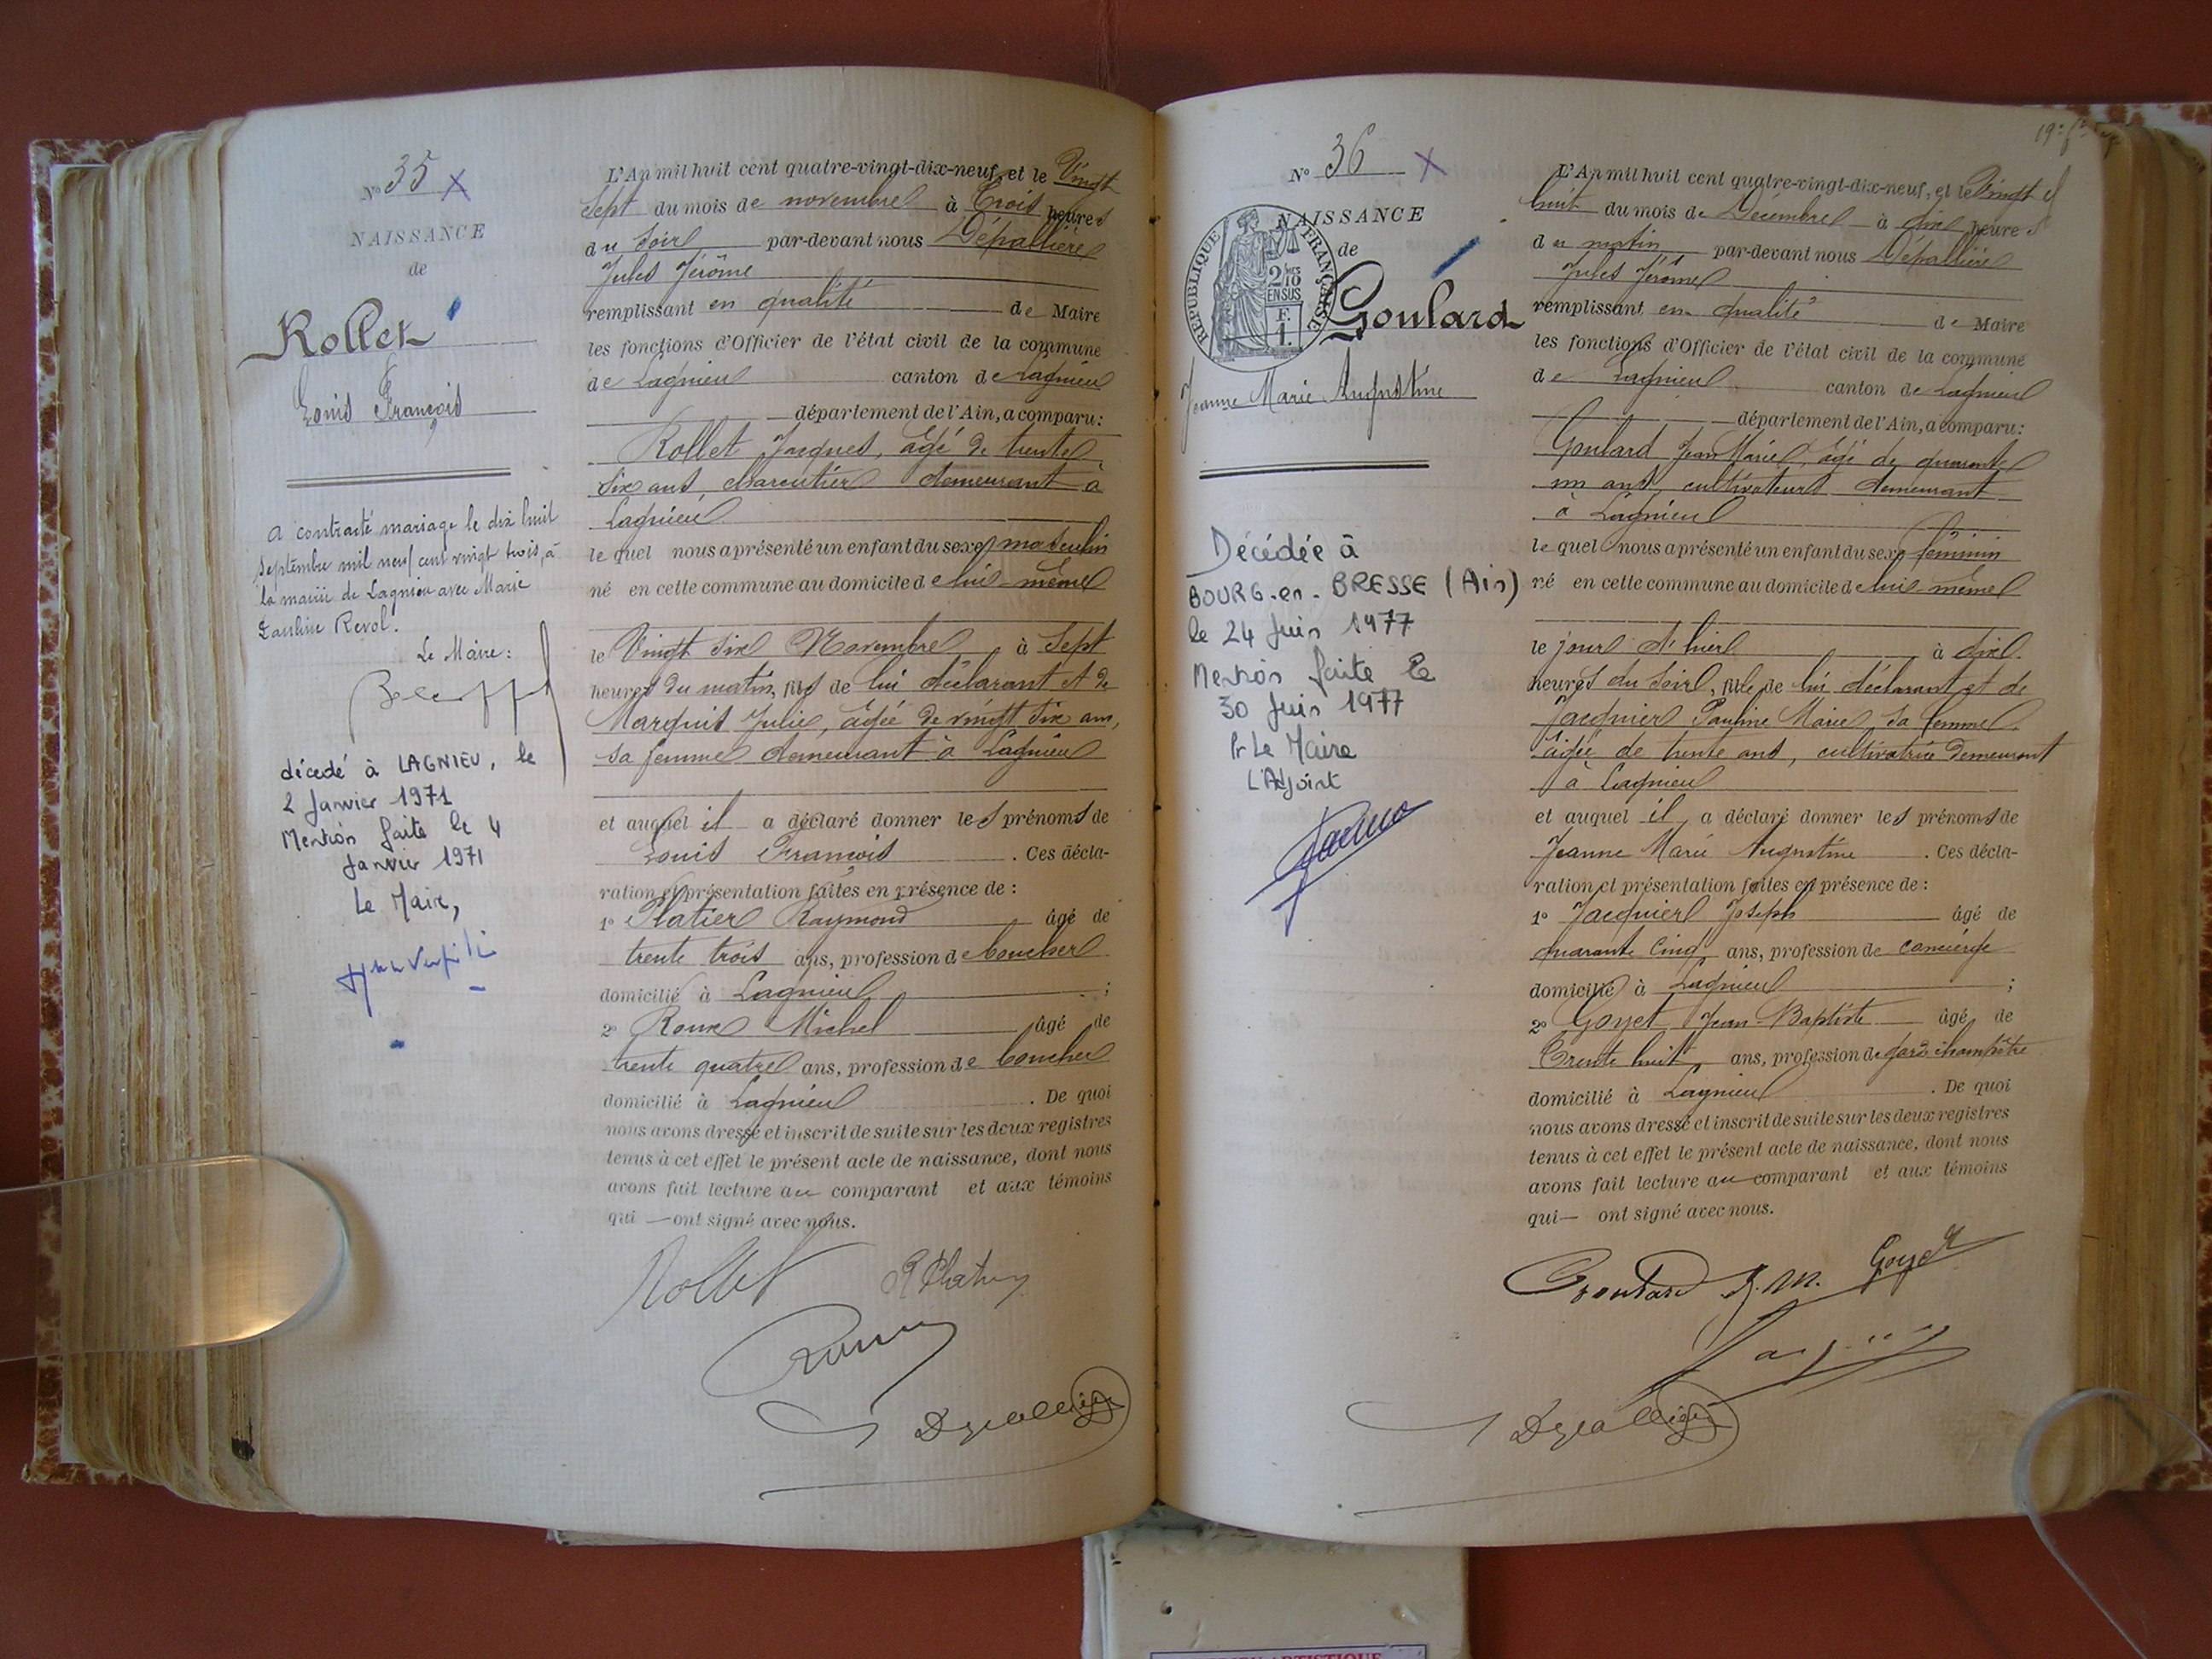 N° 35
NAISSANCE
de
Rollet
Louis François
a contracté mariage le dix huit
septembre mil neuf cent vingt trois, à
la mairie de Lagnieu avec Marie
Pauline Revol.
Le Maire:
décédé à LAGNIEU, le
2 Janvier 1971
Mention faite le 4
Janvier 1971
Le Maire,
L'An mil huit cent quatre-vingt-dix-neuf, et le Vingt
Sept du mois de novembre à Trois heures
du soir par-devant nous Dépallière
Jules Jérôme
remplissant en qualité de Maire
les fonctions d'Officier de l'état civil de la commune
de Lagnieu canton de Lagnieu
département de l'Ain, a comparu:
Rollet Jacques, âgé de trente
six ans, charcutier demeurant à
Lagnieu
lequel nous a présenté un enfant du sexe masculin
né en cette commune au domicile de lui-même
le Vingt six Novembre à Sept
heures du matin, fils de lui déclarant et de
Marquis Julie, âgée de vingt six ans,
sa femme demeurant à Lagnieu
et auquel il a déclaré donner les prénoms de
Louis François. Ces décla-
ration et présentation faites en présence de :
1° Platier Raymond âgé de
trente trois ans, profession de boucher
domicilié à Lagnieu ;
2° Roux Michel âgé de
trente quatre ans, profession de boucher
domicilié à Lagnieu. De quoi
nous avons dressé et inscrit de suite sur les deux registres
tenus à cet effet le présent acte de naissance, dont nous
avons fait lecture au comparant et aux témoins
qui — ont signé avec nous.
Rollet
N° 36
NAISSANCE
de
RÉPUBLIQUE FRANÇAISE
2/10
EN SUS
F.
1.
Goulard
Jeanne Marie Augustine
Décédée à
BOURG-en-BRESSE (Ain)
le 24 Juin 1977
Mention faite le
30 Juin 1977
Pr Le Maire
L'Adjoint
L'An mil huit cent quatre-vingt-dix-neuf, et le Vingt et
huit du mois de Décembre à dix heures
du matin par-devant nous Dépallière
Jules Jérôme
remplissant en qualité de Maire
les fonctions d'Officier de l'état civil de la commune
de Lagnieu canton de Lagnieu
département de l'Ain, a comparu:
Goulard Jean Marie, âgé de quarante
un ans, cultivateur demeurant
à Lagnieu
lequel nous a présenté un enfant du sexe féminin
né en cette commune au domicile de lui-même
le jour d'hier à dix
heures du soir, fille de lui déclarant et de
Jacquier Pauline Marie sa femme
âgée de trente ans, cultivatrice demeurant
à Lagnieu
et auquel il a déclaré donner les prénoms de
Jeanne Marie Augustine. Ces décla-
ration et présentation faites en présence de :
1° Jacquier Joseph âgé de
quarante cinq ans, profession de concierge
domicilié à Lagnieu ;
2° Goyet Jean-Baptiste âgé de
Trente huit ans, profession de garde champêtre
domicilié à Lagnieu. De quoi
nous avons dressé et inscrit de suite sur les deux registres
tenus à cet effet le présent acte de naissance, dont nous
avons fait lecture au comparant et aux témoins
qui — ont signé avec nous.
Goulard J. M. Goyet